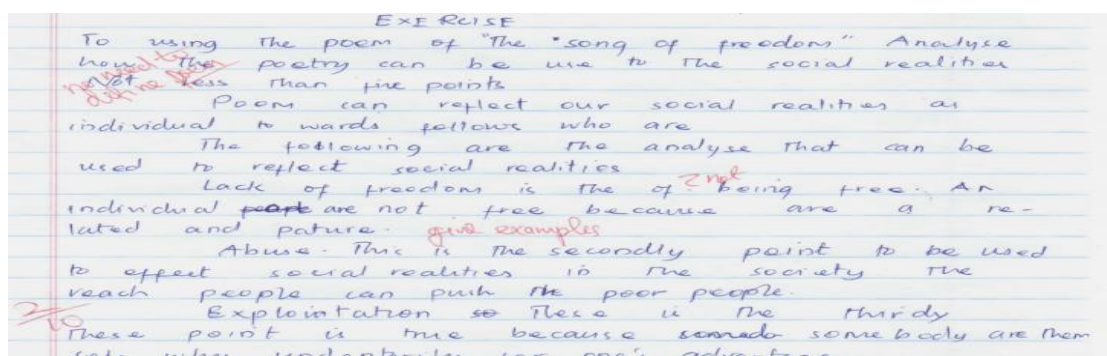 EXERCISE
To using The poem of "The "song of freedom" Analyse
how The poetry can be use to The social realities
Not less Than five points
no need to define poem
Poem can reflect our social realities as
individual to wards fellows who are
The following are The analyse That can be
used to reflect social realities
Lack of freedom is The of ? not being free. An
individual are not free because are a re-
lated and pature. give examples
Abuse. This is The secondly point to be used
to effect social realities in The society The
reach people can push The poor people.
Explointation so These is The thirdy
2/10
These point is true because somebody are Them